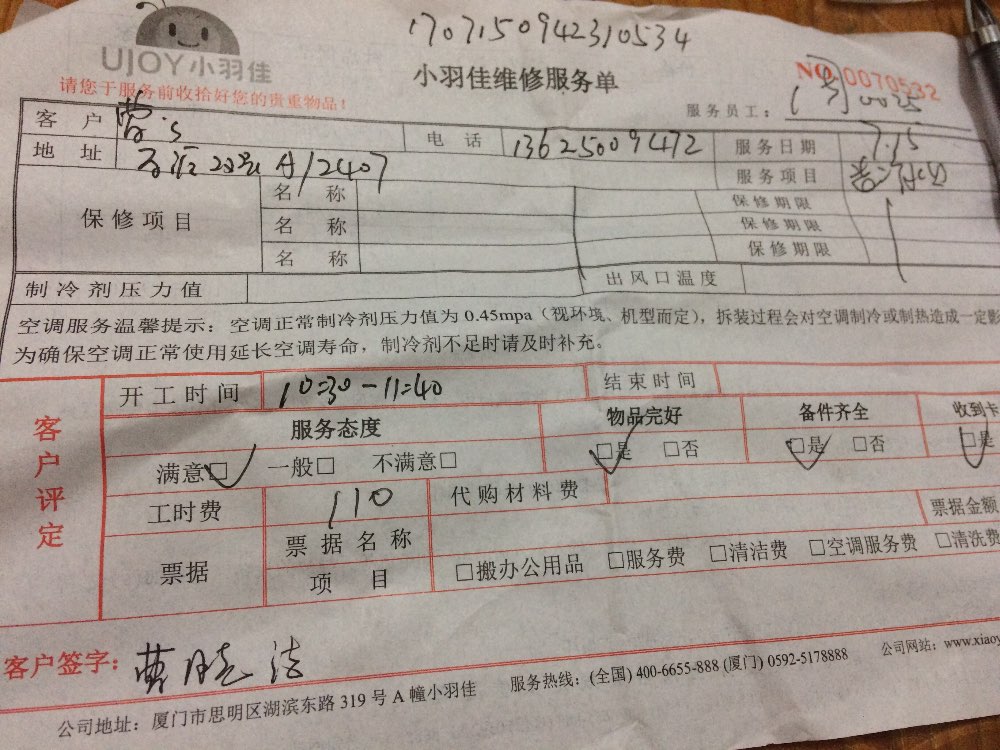 1707150942310534
UJOY小羽佳
小羽佳维修服务单
NO.0070532
请您于服务前收拾好您的贵重物品！
服务员工：
客户 曹 电话 13625009472 服务日期 7.15
地址 2407 服务项目
保修项目 名称 保修期限
名称 保修期限
名称 保修期限
制冷剂压力值 出风口温度
空调服务温馨提示：空调正常制冷剂压力值为 0.45mpa（视环境、机型而定），拆装过程会对空调制冷或制热造成一定影
为确保空调正常使用延长空调寿命，制冷剂不足时请及时补充。
客户评定
开工时间 10:30-11:40 结束时间
服务态度 物品完好 备件齐全 收到卡
满意□ 一般□ 不满意□ □是 □否 □是 □否 □是
工时费 110 代购材料费
票据 票据名称 票据金额
项目 □搬办公用品 □服务费 □清洁费 □空调服务费 □清洗费
客户签字：曹晓洁
公司地址：厦门市思明区湖滨东路 319 号 A 幢小羽佳 服务热线：(全国) 400-6655-888 (厦门) 0592-5178888 公司网站：www.xiaoy